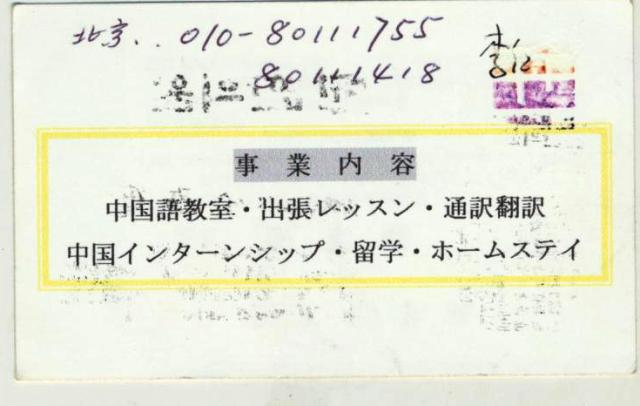 北京.. 010-80111755
80111418
事業内容
中国語教室・出張レッスン・通訳翻訳
中国インターンシップ・留学・ホームステイ